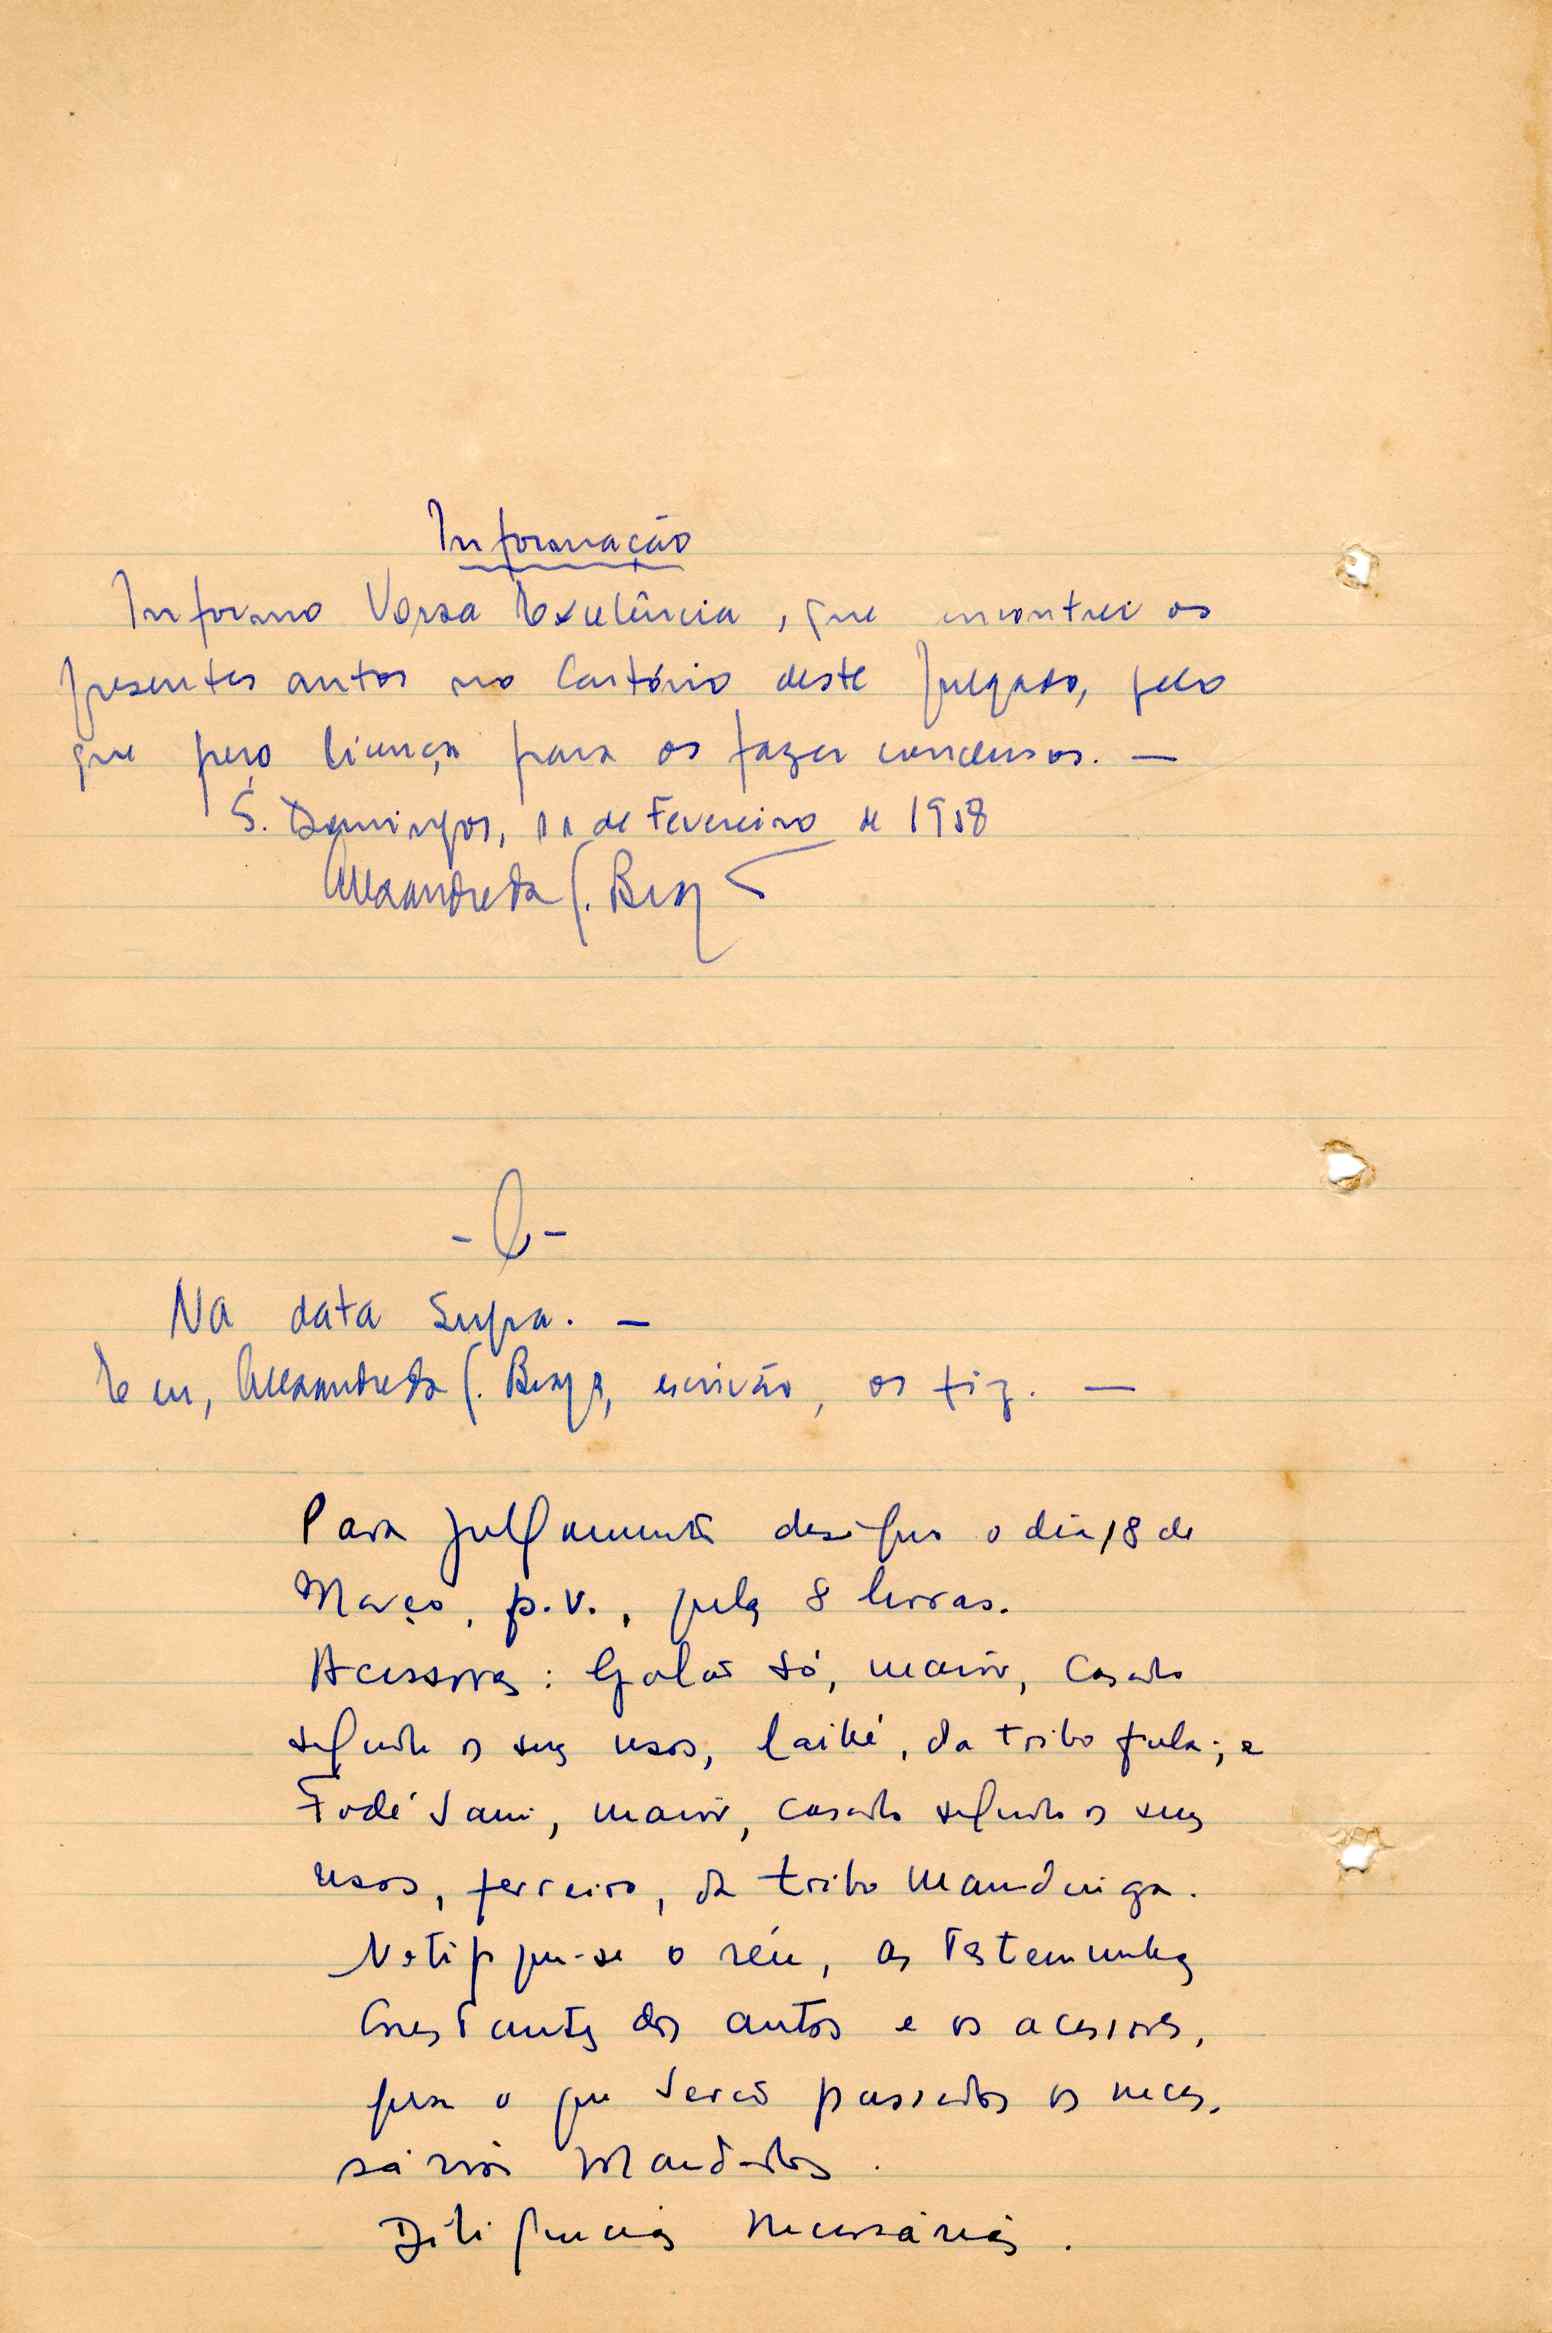 Informação
Informo Vossa Excelência, que encontrei os
presentes autos no Cartório deste Julgado, pelo
que peço licença para os fazer conclusos. —
S. Domingos, 11 de Fevereiro de 1958
Alexandre da C. Braga
- Cl -
Na data supra. —
E eu, Alexandre da C. Braga, escrivão, os fiz. —
Para julgamento designo o dia 18 de
Março, p.v., pelas 8 horas.
Acessores: Galão Só, maior, casado
segundo os seus usos, da tribo fula; e
Fodé Sani, maior, casado segundo os seus
usos, ferreiro, da tribo Mandinga.
Notifique-se o réu, as testemunhas
constantes dos autos e os acessores,
para o que serão passados os neces-
sários mandados.
Diligências necessárias.